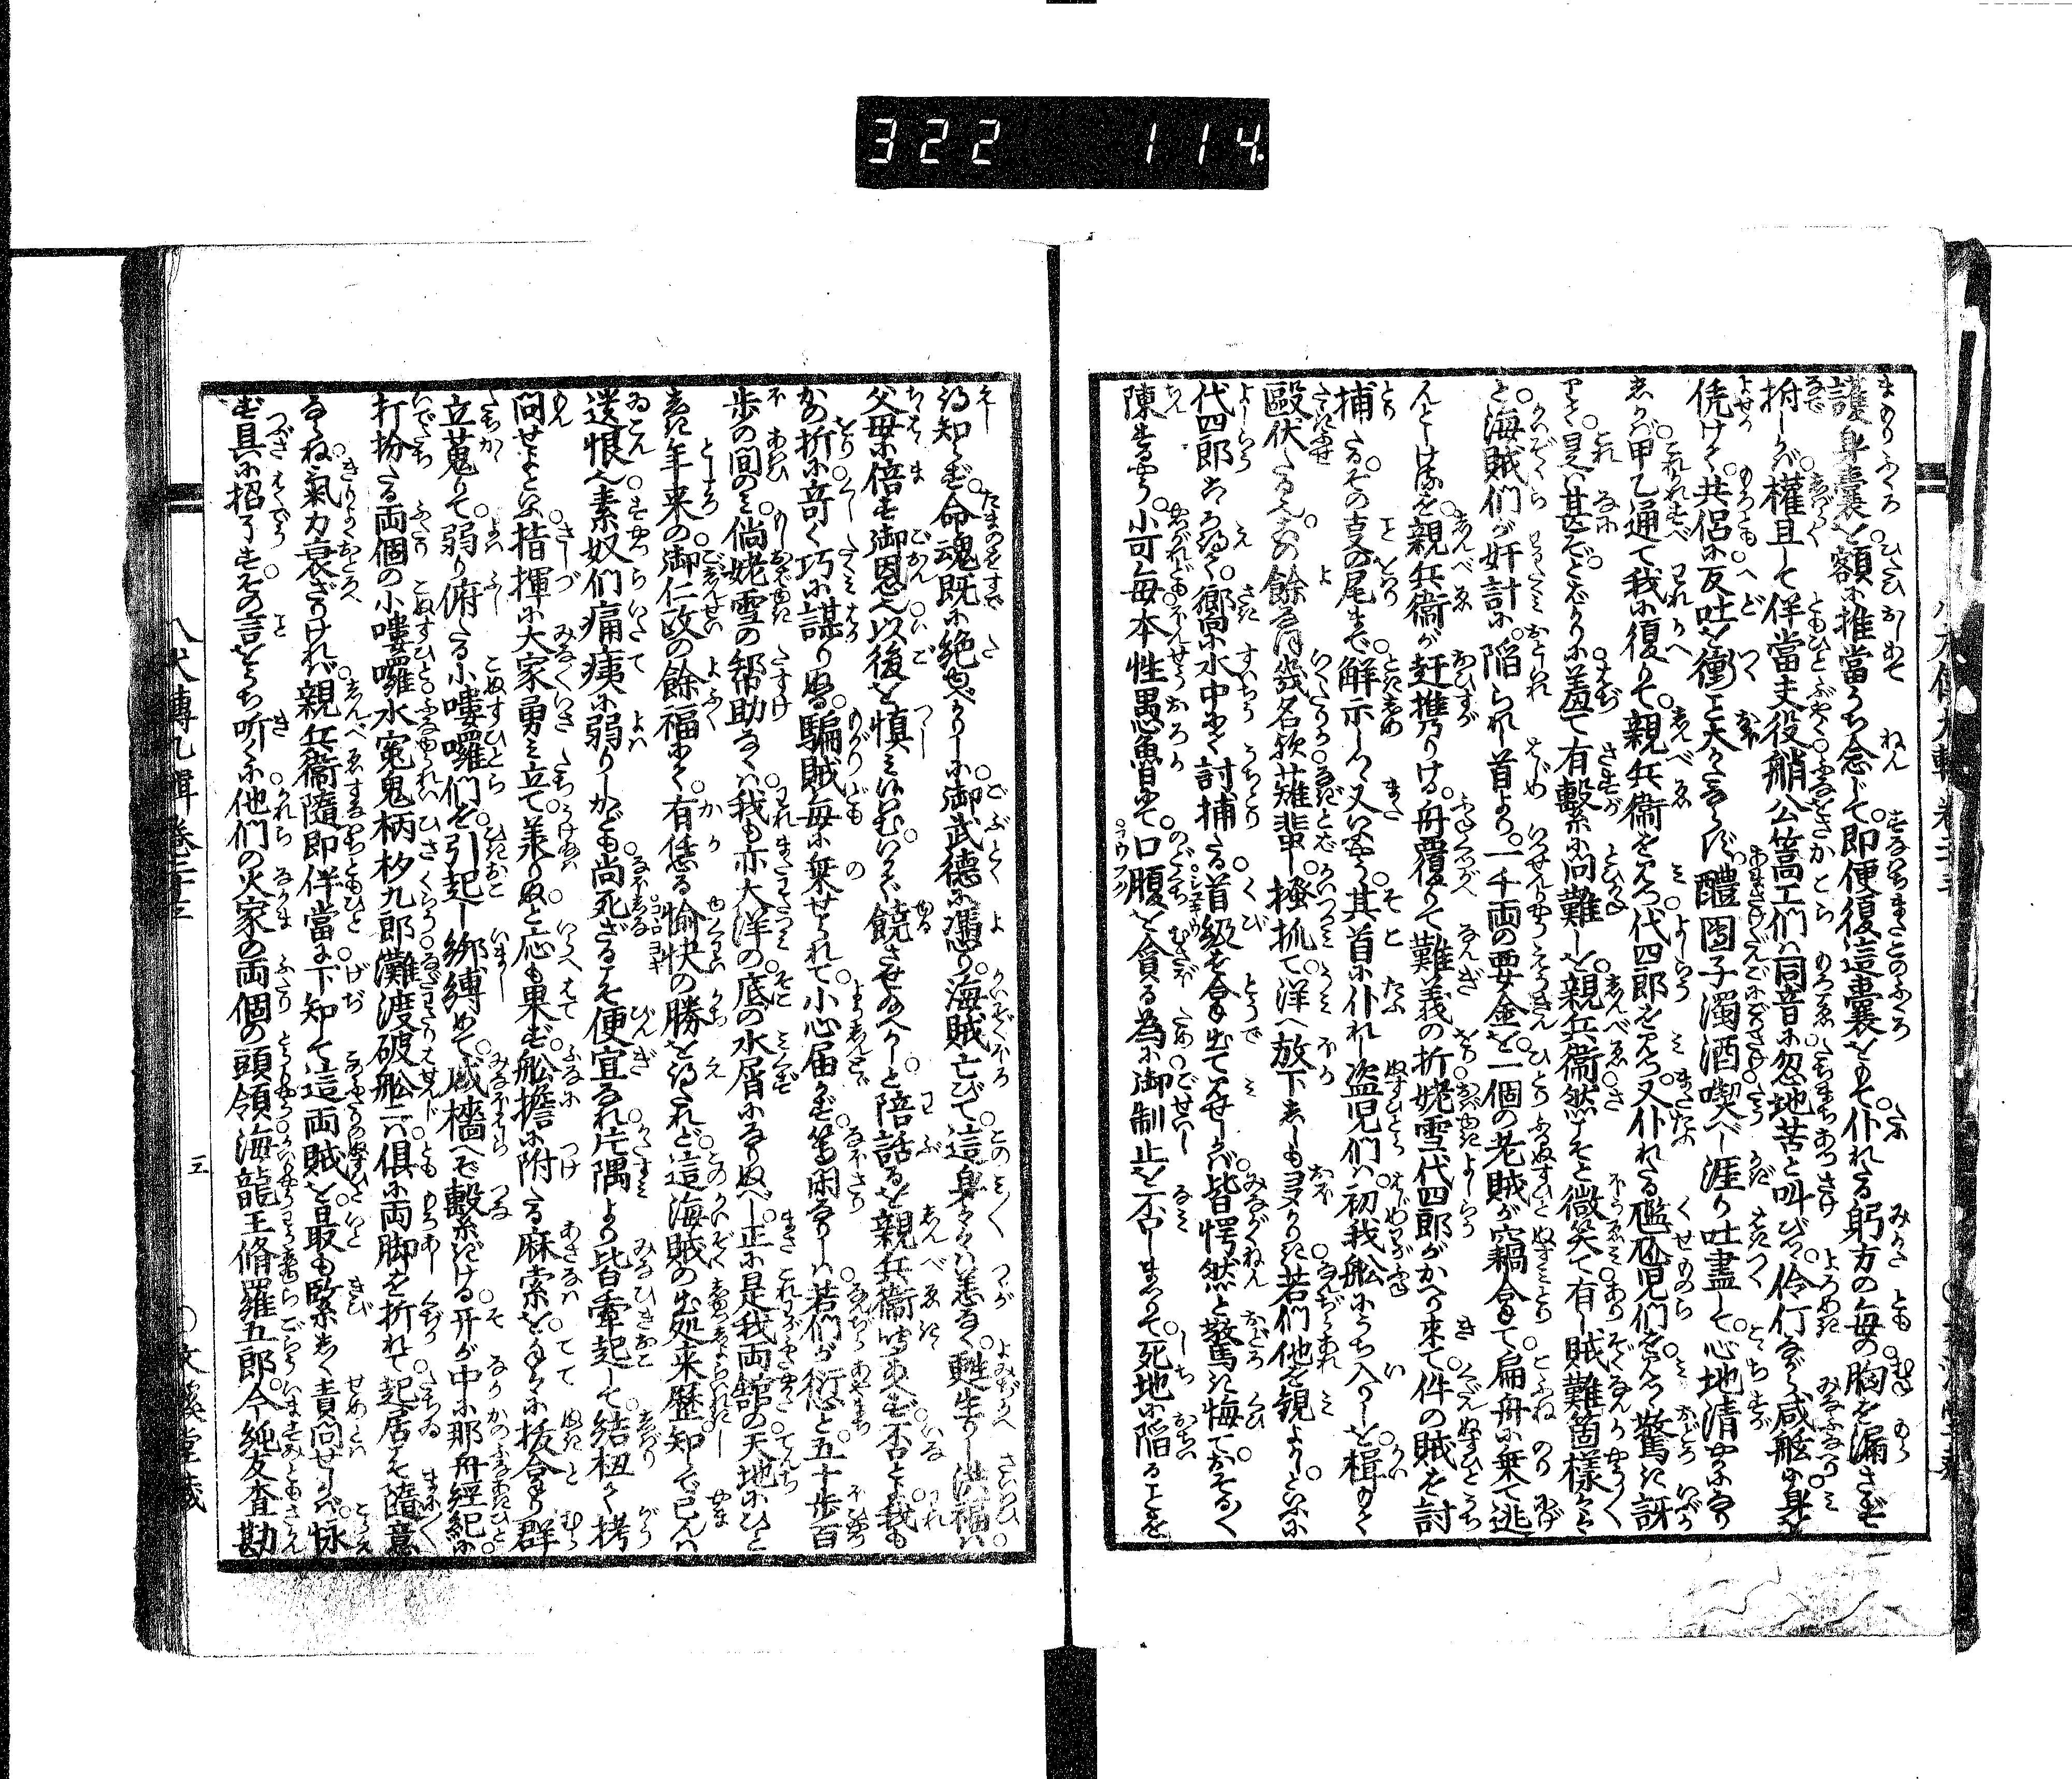 322 114.
護身嚢を額に推當うち念じて即便復這嚢をもて仆れたる躬方の毎の胸を漏さず
拊しかバ權且して伴當夫役艄公篙工們ハ同音に忽地苦と叫びつゝ伶仃ながら咸舷に身を
凭けて共侶に反吐を衝こと大かたならず醴團子濁酒喫べし涯り吐盡して心地清やかになり
しかバ甲乙通て我に復りて親兵衛を見つ代四郎を見つ又仆れたる尶尬児們を見つゝ驚き訝
りてこれハ甚ぞとばかりに羞て有繋に問難しを親兵衛然こそと微笑て有し賊難箇様々々
と海賊們が奸計に陥られし首より一千両の要金を一個の老賊が竊合して扁舟に乗て逃
んとしけるを親兵衛が赶携りける舟覆りて難義の折姥雪代四郎がかへり来て件の賊を討
捕たるその支の尾まで解示しつ又いふやう其首に仆れし盗児們ハ初我舩にうち入りしを楫もて
毆伏たるんその餘なほ幾名歟薙輩し掻抓て洋へ放下しもヌかりき若們他を観よかしといふに
代四郎ところ得て嚮に水中にて討捕たる首級を拿出て見せしかバ皆愕然と驚き悔ておそる〱
陳ずるやう小可毎本性愚魯にて口腹を貪る為に御制止を不しまゐりて死地に陥ることを
得知らず命魂既に絶ゆべかりしに御武徳に憑り海賊亡びて這身々々ハ恙なく甦生りし洪福ハ
父母に倍す御恩也以後を慎み侍むいかで饒させ給へかしと陪話るを親兵衛听あへず否とよ我も
かの折に奇く巧に謀りぬる騙賊毎に乗せられて小心届かず等閑なりしハ若們が愆と五十歩百
歩の間のミ倘姥雪の幇助なくハ我も亦大洋の底の水屑になりぬべし正に是我両舘の天地にひとし
き年来の御仁政の餘福にて有恁る愉快の勝を得たれど這海賊の出処来歴知らで已んハ
遺恨也素奴們痛痍に弱りしかども尚死ざるこそ便宜なれ片隅より皆牽起して結杻て拷
問せよといふ指揮に大家勇み立て美りぬと応も果ず舩擔に附たる麻索をとり々に抜合し群
立蒐りて弱り俯たる小嘍囉們を引起し綁縛めて咸檣へぞ繋ぎける开が中に那舟經紀に
打扮たる両個の小嘍囉水寃鬼柄杪九郎灘渡破舩二ハ倶に両脚を折れて起居こそ隨意
ならね氣力衰ざりけれバ親兵衛隨即伴當に下知して這両賊を最も緊しく責問せしかバ惊
ず具に招了すその言をうち听くに他們の火家の両個の頭領海龍王脩羅五郎今純友査勘
八犬傳九輯 巻三十三
三
文溪堂蔵